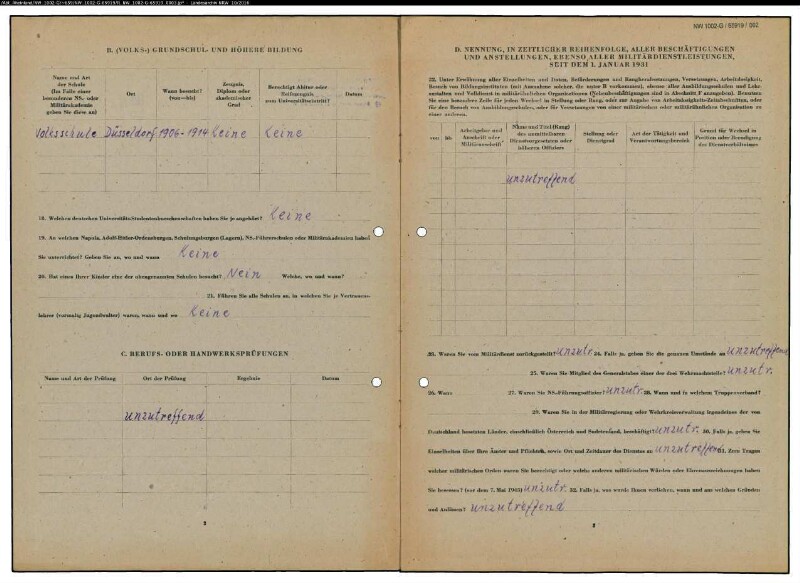 NW 1002-G / 65919 / 002
B. (VOLKS-) GRUNDSCHUL- UND HÖHERE BILDUNG
Name und Art der Schule (Im Falle einer besonderen NS- oder Militärakademie geben Sie diese an)
Ort
Wann besucht? (von—bis)
Zeugnis, Diplom oder akademischer Grad
Berechtigt Abitur oder Reifezeugnis zum Universitätseintritt?
Datum
Volksschule Düsseldorf 1906-1914 Keine Keine
18. Welchen deutschen Universitäts-Studentenburschenschaften haben Sie je angehört? Keine
19. An welchen Napola, Adolf-Hitler-, NS-Führerschulen oder Militärakademien haben
Sie unterrichtet? Geben Sie an, wo und wann Keine
20. Hat eines Ihrer Kinder eine der obengenannten Schulen besucht? Nein Welche, wo und wann?
21. Führen Sie alle Schulen an, in welchen Sie je Vertrauens-
lehrer (vormalig Jugendwalter) waren, wann und wo Keine
C. BERUFS- ODER HANDWERKSPRÜFUNGEN
Name und Art der Prüfung Ort der Prüfung Ergebnis Datum
unzutreffend
D. NENNUNG, IN ZEITLICHER REIHENFOLGE, ALLER BESCHÄFTIGUNGEN
UND ANSTELLUNGEN, EBENSO ALLER MILITÄRDIENSTLEISTUNGEN,
SEIT DEM 1. JANUAR 1931
22. Unter Erwähnung aller Einzelheiten und Daten, Beförderungen und Rangherabsetzungen, Versetzungen, Arbeitslosigkeit,
Besuch von Bildungsinstituten (mit Ausnahme solcher, die unter B vorkommen), ebenso aller Ausbildungsschulen und Lehr-
anstalten und Volldienst in militärähnlichen Organisationen (Nebenbeschäftigungen sind in Abschnitt F anzugeben). Benutzen
Sie eine besondere Zeile für jeden Wechsel in Stellung oder Rang, oder zur Angabe von Arbeitslosigkeits-Zeitabschnitten, oder
für den Besuch von Ausbildungsschulen, oder für Versetzungen von einer militärischen oder militärähnlichen Organisation zu
einer anderen.
von
bis
Arbeitgeber und Anschrift oder Militäranschrift
Name und Titel (Rang) des unmittelbaren Dienstvorgesetzten oder höheren Offiziers
Stellung oder Dienstgrad
Art der Tätigkeit und Verantwortungsbereich
Grund für Wechsel in Position oder Beendigung des Dienstverhältnisses
unzutreffend
23. Waren Sie vom Militärdienst zurückgestellt? unzutr. 24. Falls ja, geben Sie die genauen Umstände an unzutreffend
25. Waren Sie Mitglied des Generalstabes einer der drei Wehrmachtsteile? unzutr.
26. Wann 27. Waren Sie NS-Führungsoffizier? unzutr. 28. Wann und in welchem Truppenverband?
29. Waren Sie in der Militärregierung oder Wehrkreisverwaltung irgendeines der von
Deutschland besetzten Länder, einschließlich Österreich und Sudetenland, beschäftigt? unzutr. 30. Falls ja, geben Sie
Einzelheiten über Ihre Ämter und Pflichten, sowie Ort und Zeitdauer des Dienstes an unzutreffend 31. Zum Tragen
welcher militärischen Orden waren Sie berechtigt oder welche anderen militärischen Würden oder Ehrenauszeichnungen haben
Sie bewesen? (vor dem 7. Mai 1945) unzutr. 32. Falls ja, was wurde Ihnen verliehen, wann und aus welchen Gründen
und Anlässen? unzutreffend